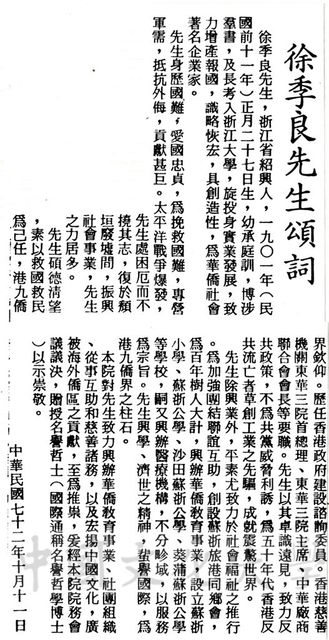 徐季良先生頌詞
徐季良先生,浙江省紹興人,一九〇一年(民
國前十一年)正月二十七日生,幼承庭訓,博涉
羣書,及長考入浙江大學,旋投身實業發展,致
力增產報國,識略恢宏,具創造性,爲華僑社會
著名企業家。
先生身歷國難,愛國忠貞,爲挽救國難,專營
軍需,抵抗外侮,貢獻甚巨。太平洋戰爭爆發,
先生處困厄而不
撓其志,復於頹
垣廢墟間,振興
社會事業,先生
之力居多。
先生碩德清望
,素以救國救民
爲己任,港九僑
界欽仰。歷任香港政府建設諮詢委員。香港慈善
機關東華三院首總理、東華三院主席,中華廠商
聯合會會長等要職。先生以其卓識遠見,致力反
共政策,不爲共黨威脅利誘,爲五十年代香港反
共流亡者草創工業之先驅,成就震驚世界。
先生除興業外,平素尤致力於社會福祉之推行
。爲加強團結聯誼互助,創設蘇浙旅港同鄉會,
爲百年樹人大計,興辦華僑教育事業,設立蘇浙
小學、蘇浙公學、沙田蘇浙公學、葵涌蘇浙公學
等學校,嗣又興辦醫療機構,不分畛域,以服務
爲宗旨。先生興學、濟世之精神,蜚譽國際,爲
港九僑界之柱石。
本院對先生致力興辦華僑教育事業、社團組織
、從事互助和慈善諸務,以及宏揚中國文化,廣
被海外僑區之貢獻,至爲推崇,爰經本院院務會
議議決,贈授名譽哲士(國際通稱名譽哲學博士
)以示崇敬。
中華民國七十二年十月十一日